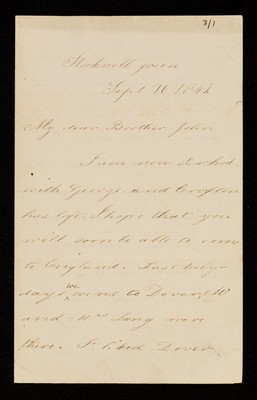 3/1
Stockwell green
Sept 16 / 
My dear Brother John
I am now at school
with George and Crofton
has left. I hope that you
will soon be able to come
to England. Last holy-
days we went to Dover, Mr
and Mrs Long were
there. I liked Dover